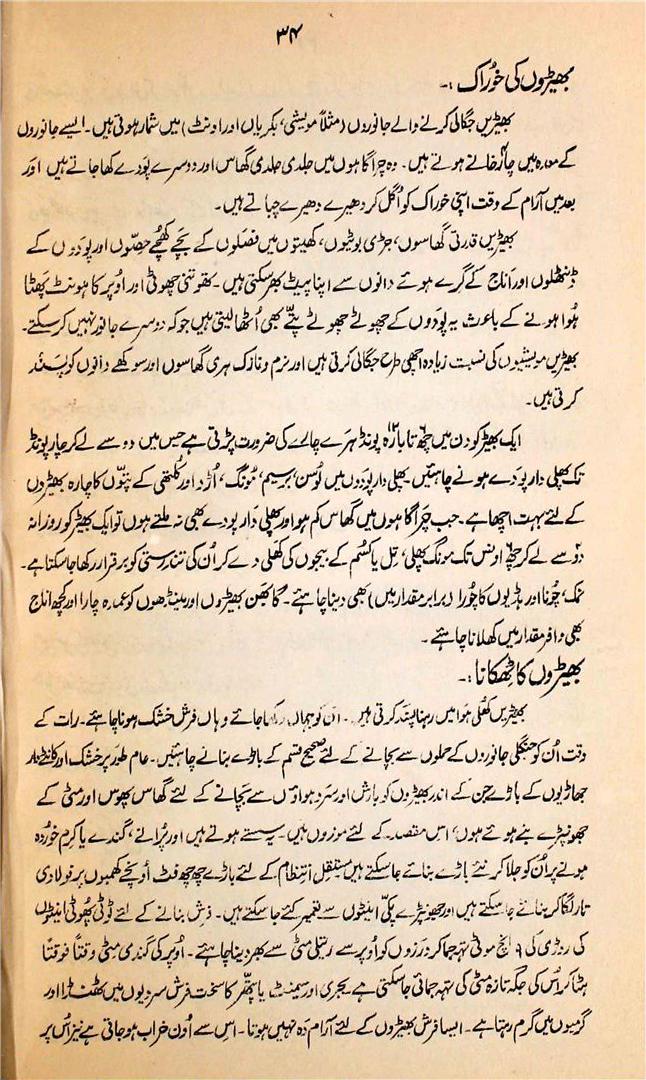 ۳۴
بھیڑوں کی خوراک :۔
بھیڑیں جگالی کرنے والے جانوروں (مثلاً مویشی، بکریاں اور اونٹ) میں شمار ہوتی ہیں۔ ایسے جانوروں
کے معدہ میں چار خانے ہوتے ہیں۔ وہ چراگاہوں میں جلدی جلدی گھاس اور دوسرے پودے کھا جاتے ہیں اور
بعد میں آرام کے وقت اپنی خوراک کو اُگل کر دھیرے دھیرے چباتے ہیں۔
بھیڑیں قدرتی گھاسوں، جڑی بوٹیوں، کھیتوں میں فصلوں کے بچے کھچے حصّوں اور پودوں کے
ڈنٹھلوں اور اناج کے گرے ہوئے دانوں سے اپنا پیٹ بھر سکتی ہیں۔ تھوتنی چھوٹی اور اُوپر کا ہونٹ پھٹا
ہُوا ہونے کے باعث یہ پودوں کے چھوٹے چھوٹے پتّے بھی اُٹھا لیتی ہیں جو کہ دوسرے جانور نہیں کر سکتے۔
بھیڑیں مویشیوں کی نسبت زیادہ اچھی طرح جگالی کرتی ہیں اور نرم و نازک ہری گھاسوں اور سوکھے دانوں کو پسند
کرتی ہیں۔
ایک بھیڑ کو دن میں چھ ۶ تا بارہ ۱۲ پونڈ ہرے چارے کی ضرورت پڑتی ہے جس میں دو سے لے کر چار پونڈ
تک پھلی دار پودے ہونے چاہئیں۔ پھلی دار پودوں میں لوسن، برسیم، مونگ، اُڑد اور کلتھی کے پتّوں کا چارہ بھیڑوں
کے لئے بہت اچھا ہے۔ جب چراگاہوں میں گھاس کم ہو اور پھلی دار پودے بھی نہ ملتے ہوں تو ایک بھیڑ کو روزانہ
دو ۲ سے لے کر چھ ۶ اونس تک مونگ پھلی، تِل یا کسُم کے بیجوں کی کھلی دے کر اُن کی تندرستی کو برقرار رکھا جا سکتا ہے۔
نمک، چُونا اور ہڈیوں کا چُورا (برابر مقدار میں) بھی دینا چاہئے۔ گابھن بھیڑوں اور مینڈھوں کو عمدہ چارا اور کچھ اناج
بھی وافر مقدار میں کھلانا چاہئے۔
بھیڑوں کا ٹھکانا :۔
بھیڑیں کُھلی ہوا میں رہنا پسند کرتی ہیں۔ ان کو جہاں رکھا جائے وہاں فرش خشک ہونا چاہئے۔ رات کے
وقت اُن کو جنگلی جانوروں کے حملوں سے بچانے کے لئے صحیح قسم کے باڑے بنانے چاہئیں۔ عام طور پر خشک اور کانٹے دار
جھاڑیوں کے باڑے جن کے اندر بھیڑوں کو بارش اور سرد ہواؤں سے بچانے کے لئے گھاس پھوس اور مٹی کے
جھونپڑے بنے ہوئے ہوں، اس مقصد کے لئے موزوں ہیں۔ یہ سستے ہوتے ہیں اور پُرانے، گندے یا کِرم خوردہ
ہونے پر اُن کو جلا کر نئے باڑے بنائے جا سکتے ہیں۔ مستقل انتظام کے لئے باڑے چھ چھ فٹ اُونچے کھمبوں پر فولادی
تار لگا کر بنائے جا سکتے ہیں اور جھونپڑے پکّی اینٹوں سے تعمیر کئے جا سکتے ہیں۔ فرش بنانے کے لئے ٹوٹی پھوٹی اینٹوں
کی روڑی کی ۹ اِنچ موٹی تہہ جما کر درزوں کو اُوپر سے ریتلی مٹی سے بھر دینا چاہئے۔ اُوپر کی گندی مٹی وقتاً فوقتاً
ہٹا کر اُس کی جگہ تازہ مٹی کی تہہ جمائی جا سکتی ہے۔ بجری اور سیمنٹ یا پتھّر کا سخت فرش سردیوں میں ٹھنڈا اور
گرمیوں میں گرم رہتا ہے۔ ایسا فرش بھیڑوں کے لئے آرام دہ نہیں ہوتا۔ اس سے اُون خراب ہو جاتی ہے نیز اُس پر